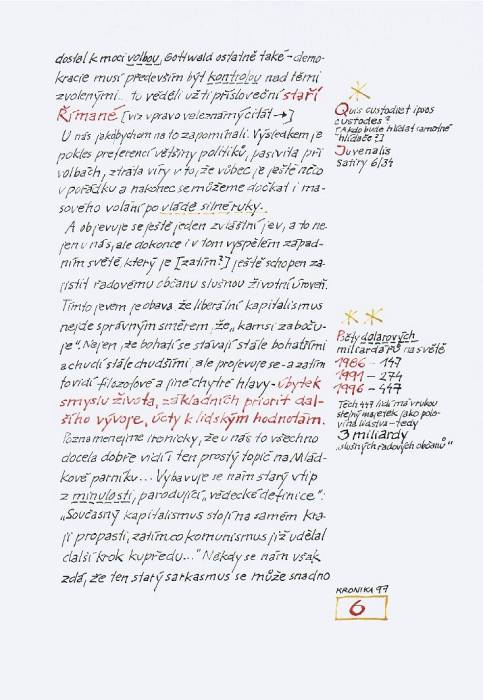 dostal k moci volbou, Gottwald ostatně také – demo-
kracie musí především být kontrolou nad těmi
zvolenými... to věděli už ti přísloveční staří
Římané [viz vpravo veleznámý citát →]
U nás jakobychom na to zapomínali. Výsledkem je
pokles preferencí většiny politiků, pasivita při
volbách, ztráta víry v to, že vůbec je ještě něco
v pořádku a nakonec se můžeme dočkat i ma-
sového volání po vládě silné ruky.
A objevuje se ještě jeden zvláštní jev, a to ne-
jen u nás, ale dokonce i v tom vyspělém západ-
ním světě, který je [zatím?] ještě schopen za-
jistit řadovému občanu slušnou životní úroveň.
Tímto jevem je obava, že liberální kapitalismus
nejde správným směrem, že „kamsi zaboču-
je“. Nejen, že bohatí se stávají stále bohatšími
a chudí stále chudšími, ale projevuje se – a zatím
to vidí filozofové a jiné chytré hlavy – úbytek
smyslu života, základních priorit dal-
šího vývoje, úcty k lidským hodnotám.
Poznamenejme ironicky, že u nás to všechno
docela dobře vidí i ten prostý topič na Mlád-
kově parníku... Vybavuje se nám starý vtip
z minulosti, parodující „vědecké definice“:
„Současný kapitalismus stojí na samém kra-
ji propasti, zatímco komunismus již udělal
další krok kupředu...“ Někdy se nám však
zdá, že ten starý sarkasmus se může snadno
Quis custodiet ipsos
custodes?
[A kdo bude hlídat samotné
hlídače?]
Juvenalis
satiry 6/34
Počty dolarových
miliardářů na světě
1986 – 147
1991 – 274
1996 – 447
Těch 447 lidí má v rukou
stejný majetek jako polo-
vina lidstva – tedy
3 miliardy
„slušných řadových občanů“
KRONIKA 97
6